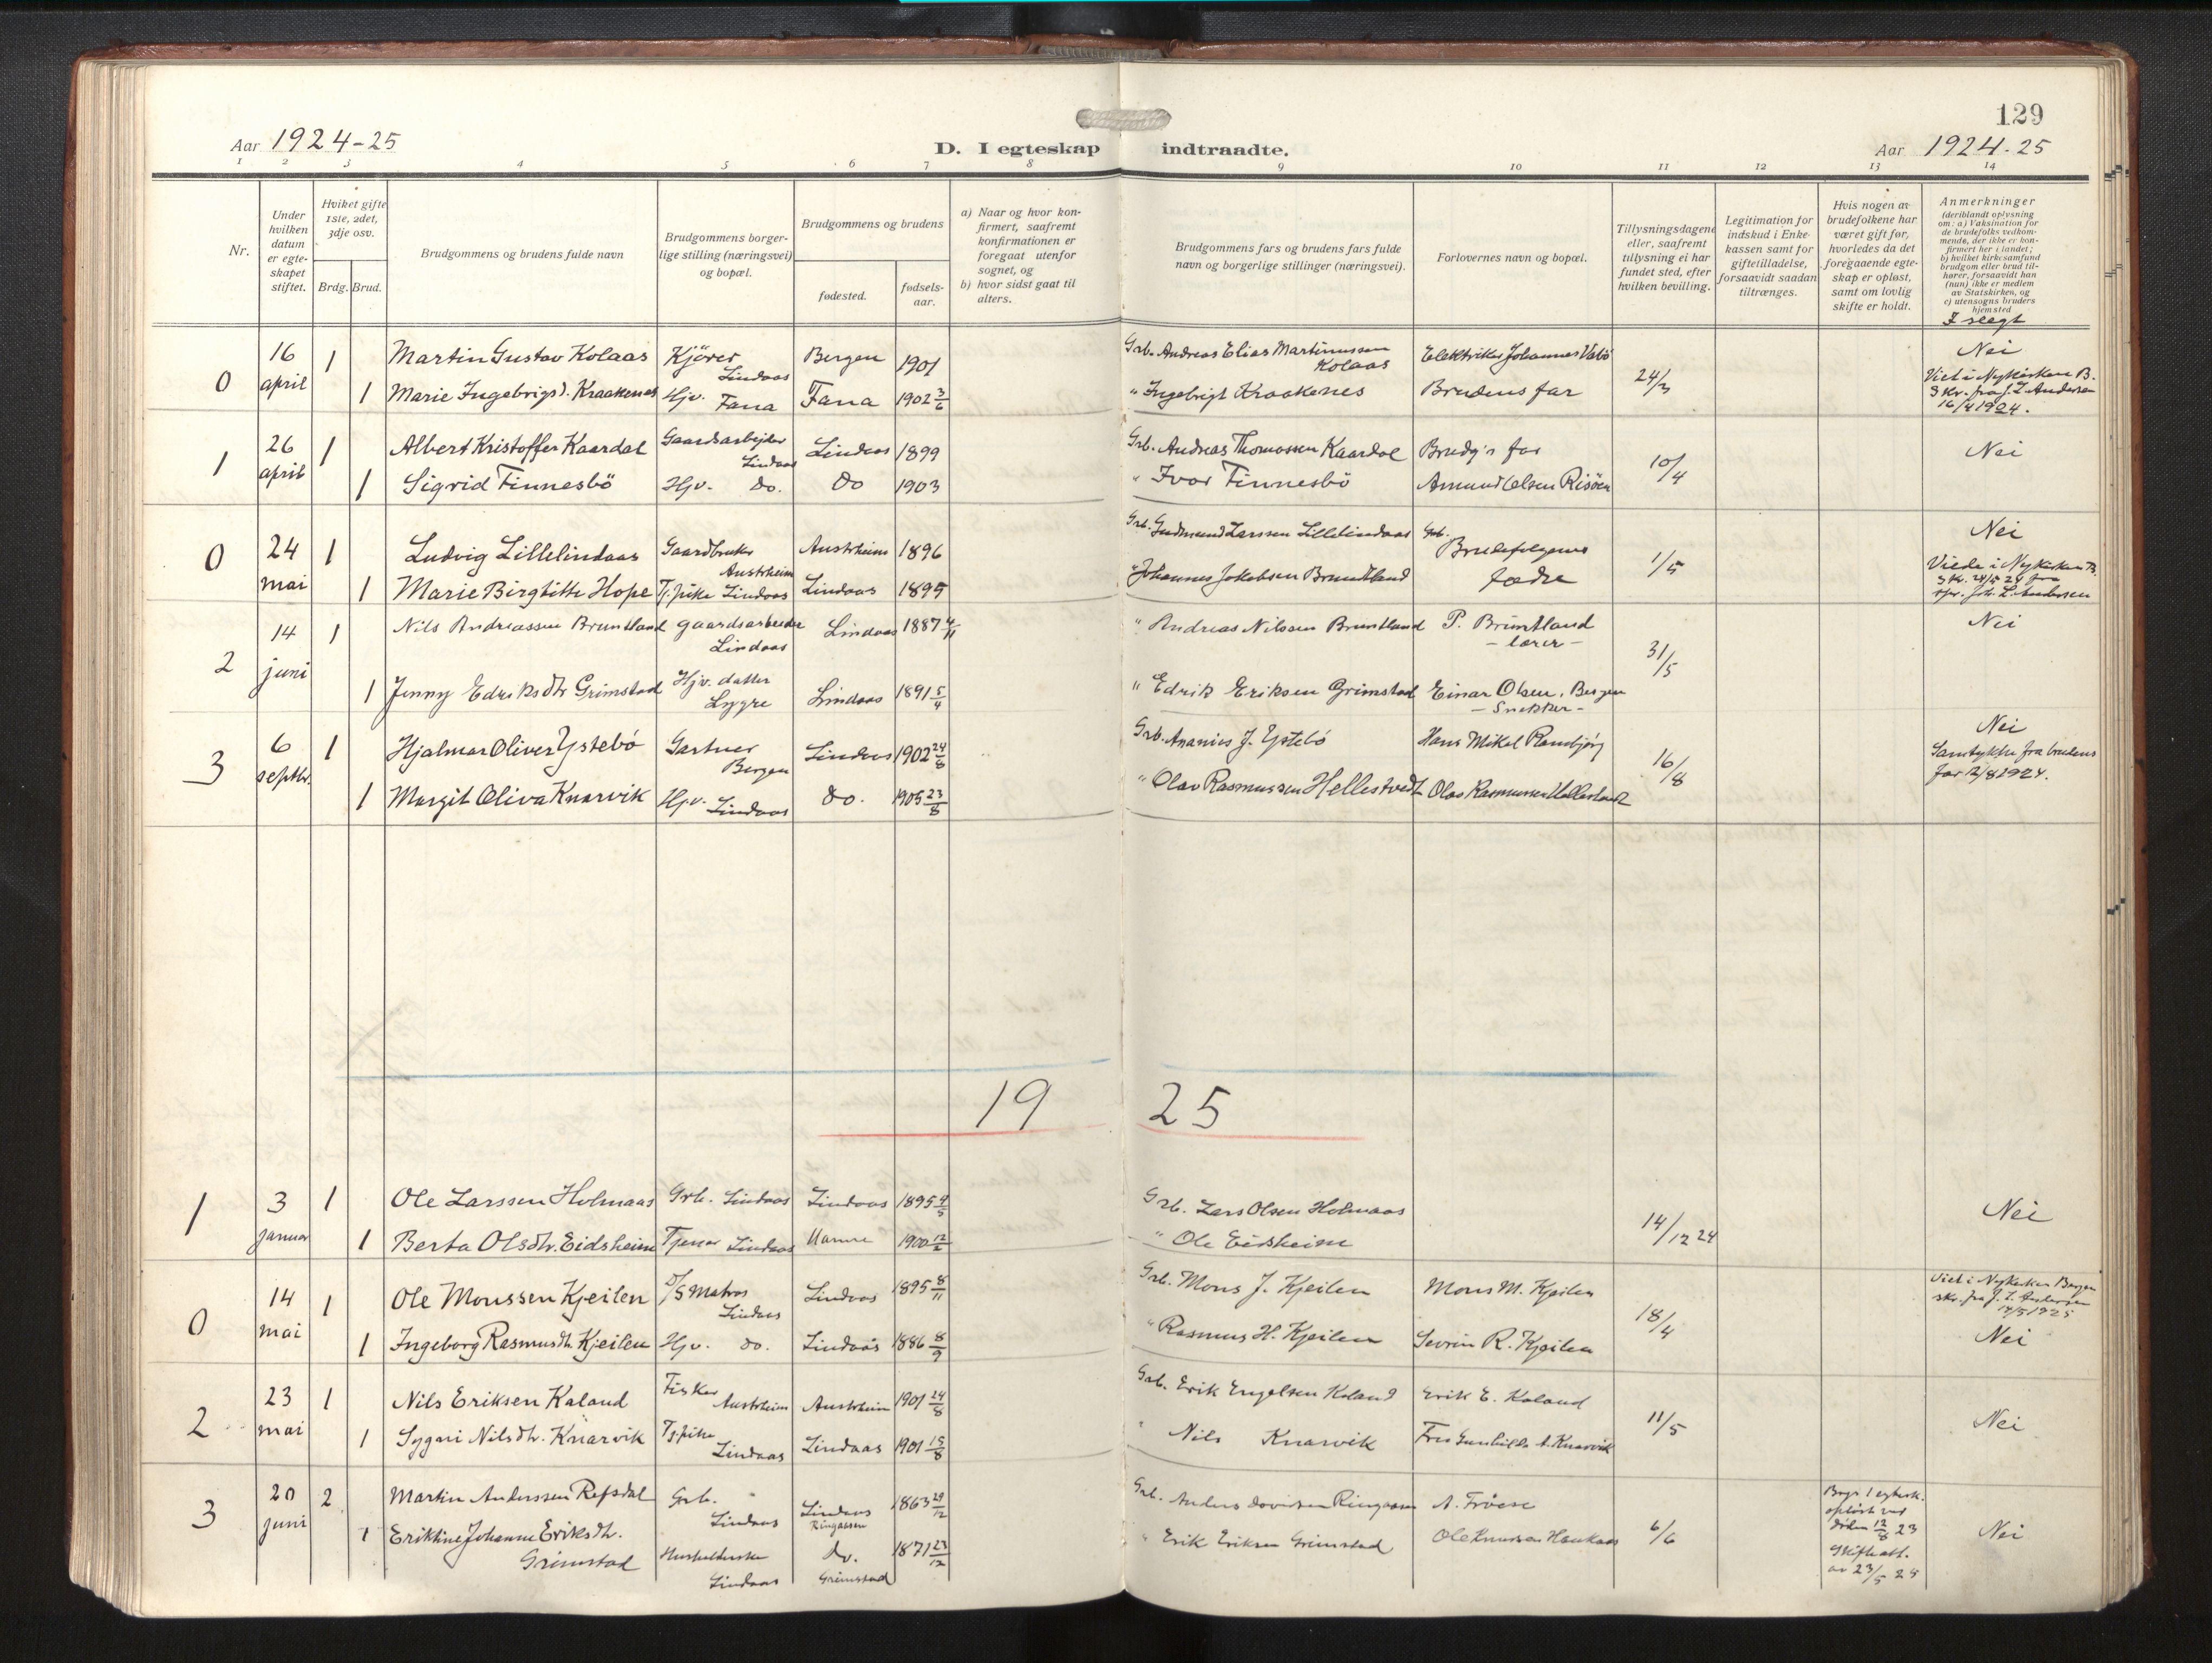 129
Aar 1924-25
D. I egteskap indtraadte.
Aar 1924-25
1 2 3 4 5 6 7 8 9 10 11 12 13 14
Nr.
Under hvilken datum er egte-skapet stiftet.
Hviket gifte 1ste, 2det, 3dje osv.
Brdg. Brud.
Brudgommens og brudens fulde navn
Brudgommens borger-lige stilling (næringsvei) og bopæl.
Brudgommens og brudens
fødested.
fødsels-aar.
a) Naar og hvor kon-firmert, saafremt konfirmationen er foregaat utenfor sognet, og
b) hvor sidst gaat til alters.
Brudgommens fars og brudens fars fulde navn og borgerlige stillinger (næringsvei).
Forlovernes navn og bopæl.
Tillysningsdagene eller, saafremt tillysning ei har fundet sted, efter hvilken bevilling.
Legitimation for indskud i Enke-kassen samt for giftetilladelse, forsaavidt saadan tiltrænges.
Hvis nogen av brudefolkene har været gift før, hvorledes da det foregaaende egte-skap er opløst, samt om lovlig skifte er holdt.
Anmerkninger
(deriblandt oplysning om: a) Vaksination for de brudefolks vedkom-mende, der ikke er kon-firmert her i landet; b) hvilket kirkesamfund brudgom eller brud til-hører, forsaavidt han (hun) ikke er medlem av Statskirken, og c) utensogns bruders hjemsted
I slegt
0 16 april 1 Martin Gustav Kolaas Kjører Lindaas Bergen 1901 Grb. Andreas Elias Martinussen Kolaas Elektriker Johannes Vabø 24/3 Nei
1 Marie Ingebrigsd. Kraakenes Hjv. Fana Fana 1902 3/6 " Ingebrigt Kraakenes Brudens far Viet i Nykirken B.
Skr. fra J. L. Andersen
16/4 1924.
1 26 april 1 Albert Kristoffer Kaardal Gaardsarbejder Lindaas Lindaas 1899 Grb. Andreas Thomassen Kaardal Brudg's far 10/4 Nei
1 Sigrid Finnesbö Hjv. do. do 1903 " Ivar Finnesbö Amund Olsen Risöen
0 24 mai 1 Ludvig Lillelindaas Gaardbruker Austrheim Austrheim 1896 Grb. Gudmund Larssen Lillelindaas Grb. Brudefolgenes fædre 1/5 Nei
1 Marie Birgitte Hope Tj.pike Lindaas Lindaas 1895 " Johannes Jakobsen Bruntland Viede i Nykirken B.
Skr. 24/5 24 fra
spr. Joh. L. Andersen
2 14 juni 1 Nils Andreassen Bruntland gaardsarbeider Lindaas Lindaas 1887 4/11 " Andreas Nilssen Bruntland P. Bruntland - lærer - 31/5 Nei
1 Jenny Edriksdtr Grimstad Hjv. datter Lygre Lindaas 1891 5/4 " Edrik Eriksen Grimstad Einar Olsen, Bergen - Snekker -
3 6 septbr. 1 Hjalmar Oliver Ystebö Gartner Bergen Lindaas 1902 24/8 Grb. Ananias J. Ystebö Hans Mikal Rambjörg 16/8 Nei
Samtykke fra brudens
far 2/8 1924.
1 Margit Oliva Knarvik Hjv. Lindaas do. 1905 23/8 " Olav Rasmussen Hellestvedt Olav Rasmussen Hellestvedt
19 25
1 3 januar 1 Ole Larssen Holmaas Grb. Lindaas Lindaas 1895 4/5 Grb. Lars Olsen Holmaas 14/12 24 Nei
1 Berta Olsdtr. Eidsheim Tjener Lindaas Hamre 1900 12/2 " Ole Eidsheim
0 14 mai 1 Ole Monssen Kjeilen D/S Matros Lindaas Lindaas 1895 8/11 Grb. Mons J. Kjeilen Mons M. Kjeilen 18/4 Viet i Nykirken Bergen
skr. fra J. L. Andersen
14/5 1925
1 Ingeborg Rasmusdtr. Kjeilen Hjv. do. Lindaas 1886 8/9 " Rasmus H. Kjeilen Sevrin R. Kjeilen Nei
2 23 mai 1 Nils Eriksen Kaland Fisker Austrheim Austrheim 1901 24/8 Grb. Erik Engelsen Kaland Erik E. Kaland 11/5 Nei
1 Sygni Nilsdtr. Knarvik Tj.pike Lindaas Lindaas 1901 15/8 " Nils Knarvik Fru Gunhilda A. Knarvik
3 20 juni 2 Martin Anderssen Refsdal Grb. Lindaas Lindaas Ringaasen 1863 29/12 Grb. Anders Davidsen Ringaasen A. Fröese 6/6 Brgs 1 egtesk.
opløst ved
döden 12/8 23
Skifteatt.
av 23/5 25
Nei
1 Eriktine Johanne Eriksdtr. Grimstad Husholderske Lindaas do. Grimstad 1871 23/12 " Erik Eriksen Grimstad Ole Knutsen Haukaas